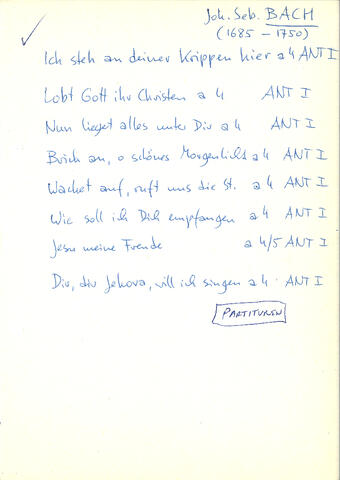 Joh. Seb. BACH
(1685 - 1750)
Ich steh an deiner Krippen hier a 4 ANT I
Lobt Gott ihr Christen a 4 ANT I
Nun lieget alles unter Dir a 4 ANT I
Brich an, o schönes Morgenlicht a 4 ANT I
Wachet auf, ruft uns die St. a 4 ANT I
Wie soll ich Dich empfangen a 4 ANT I
Jesu meine Freude a 4/5 ANT I
Dir, dir Jehova, will ich singen a 4 ANT I
PARTITUREN